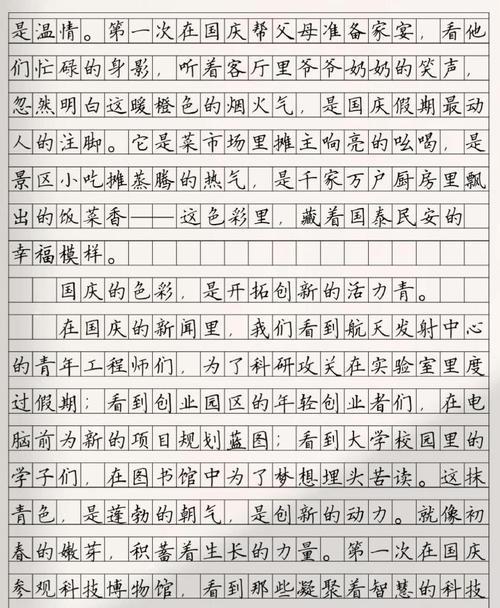 是温情。第一次在国庆帮父母准备家宴，看他
们忙碌的身影，听着客厅里爷爷奶奶的笑声，
忽然明白这暖橙色的烟火气，是国庆假期最动
人的注脚。它是菜市场里摊主响亮的吆喝，是
景区小吃摊蒸腾的热气，是千家万户厨房里飘
出的饭菜香——这色彩里，藏着国泰民安的
幸福模样。
国庆的色彩，是开拓创新的活力青。
在国庆的新闻里，我们看到航天发射中心
的青年工程师们，为了科研攻关在实验室里度
过假期；看到创业园区的年轻创业者们，在电
脑前为新的项目规划蓝图；看到大学校园里的
学子们，在图书馆中为了梦想埋头苦读。这抹
青色，是蓬勃的朝气，是创新的动力。就像初
春的嫩芽，积蓄着生长的力量。第一次在国庆
参观科技博物馆，看到那些凝聚着智慧的科技